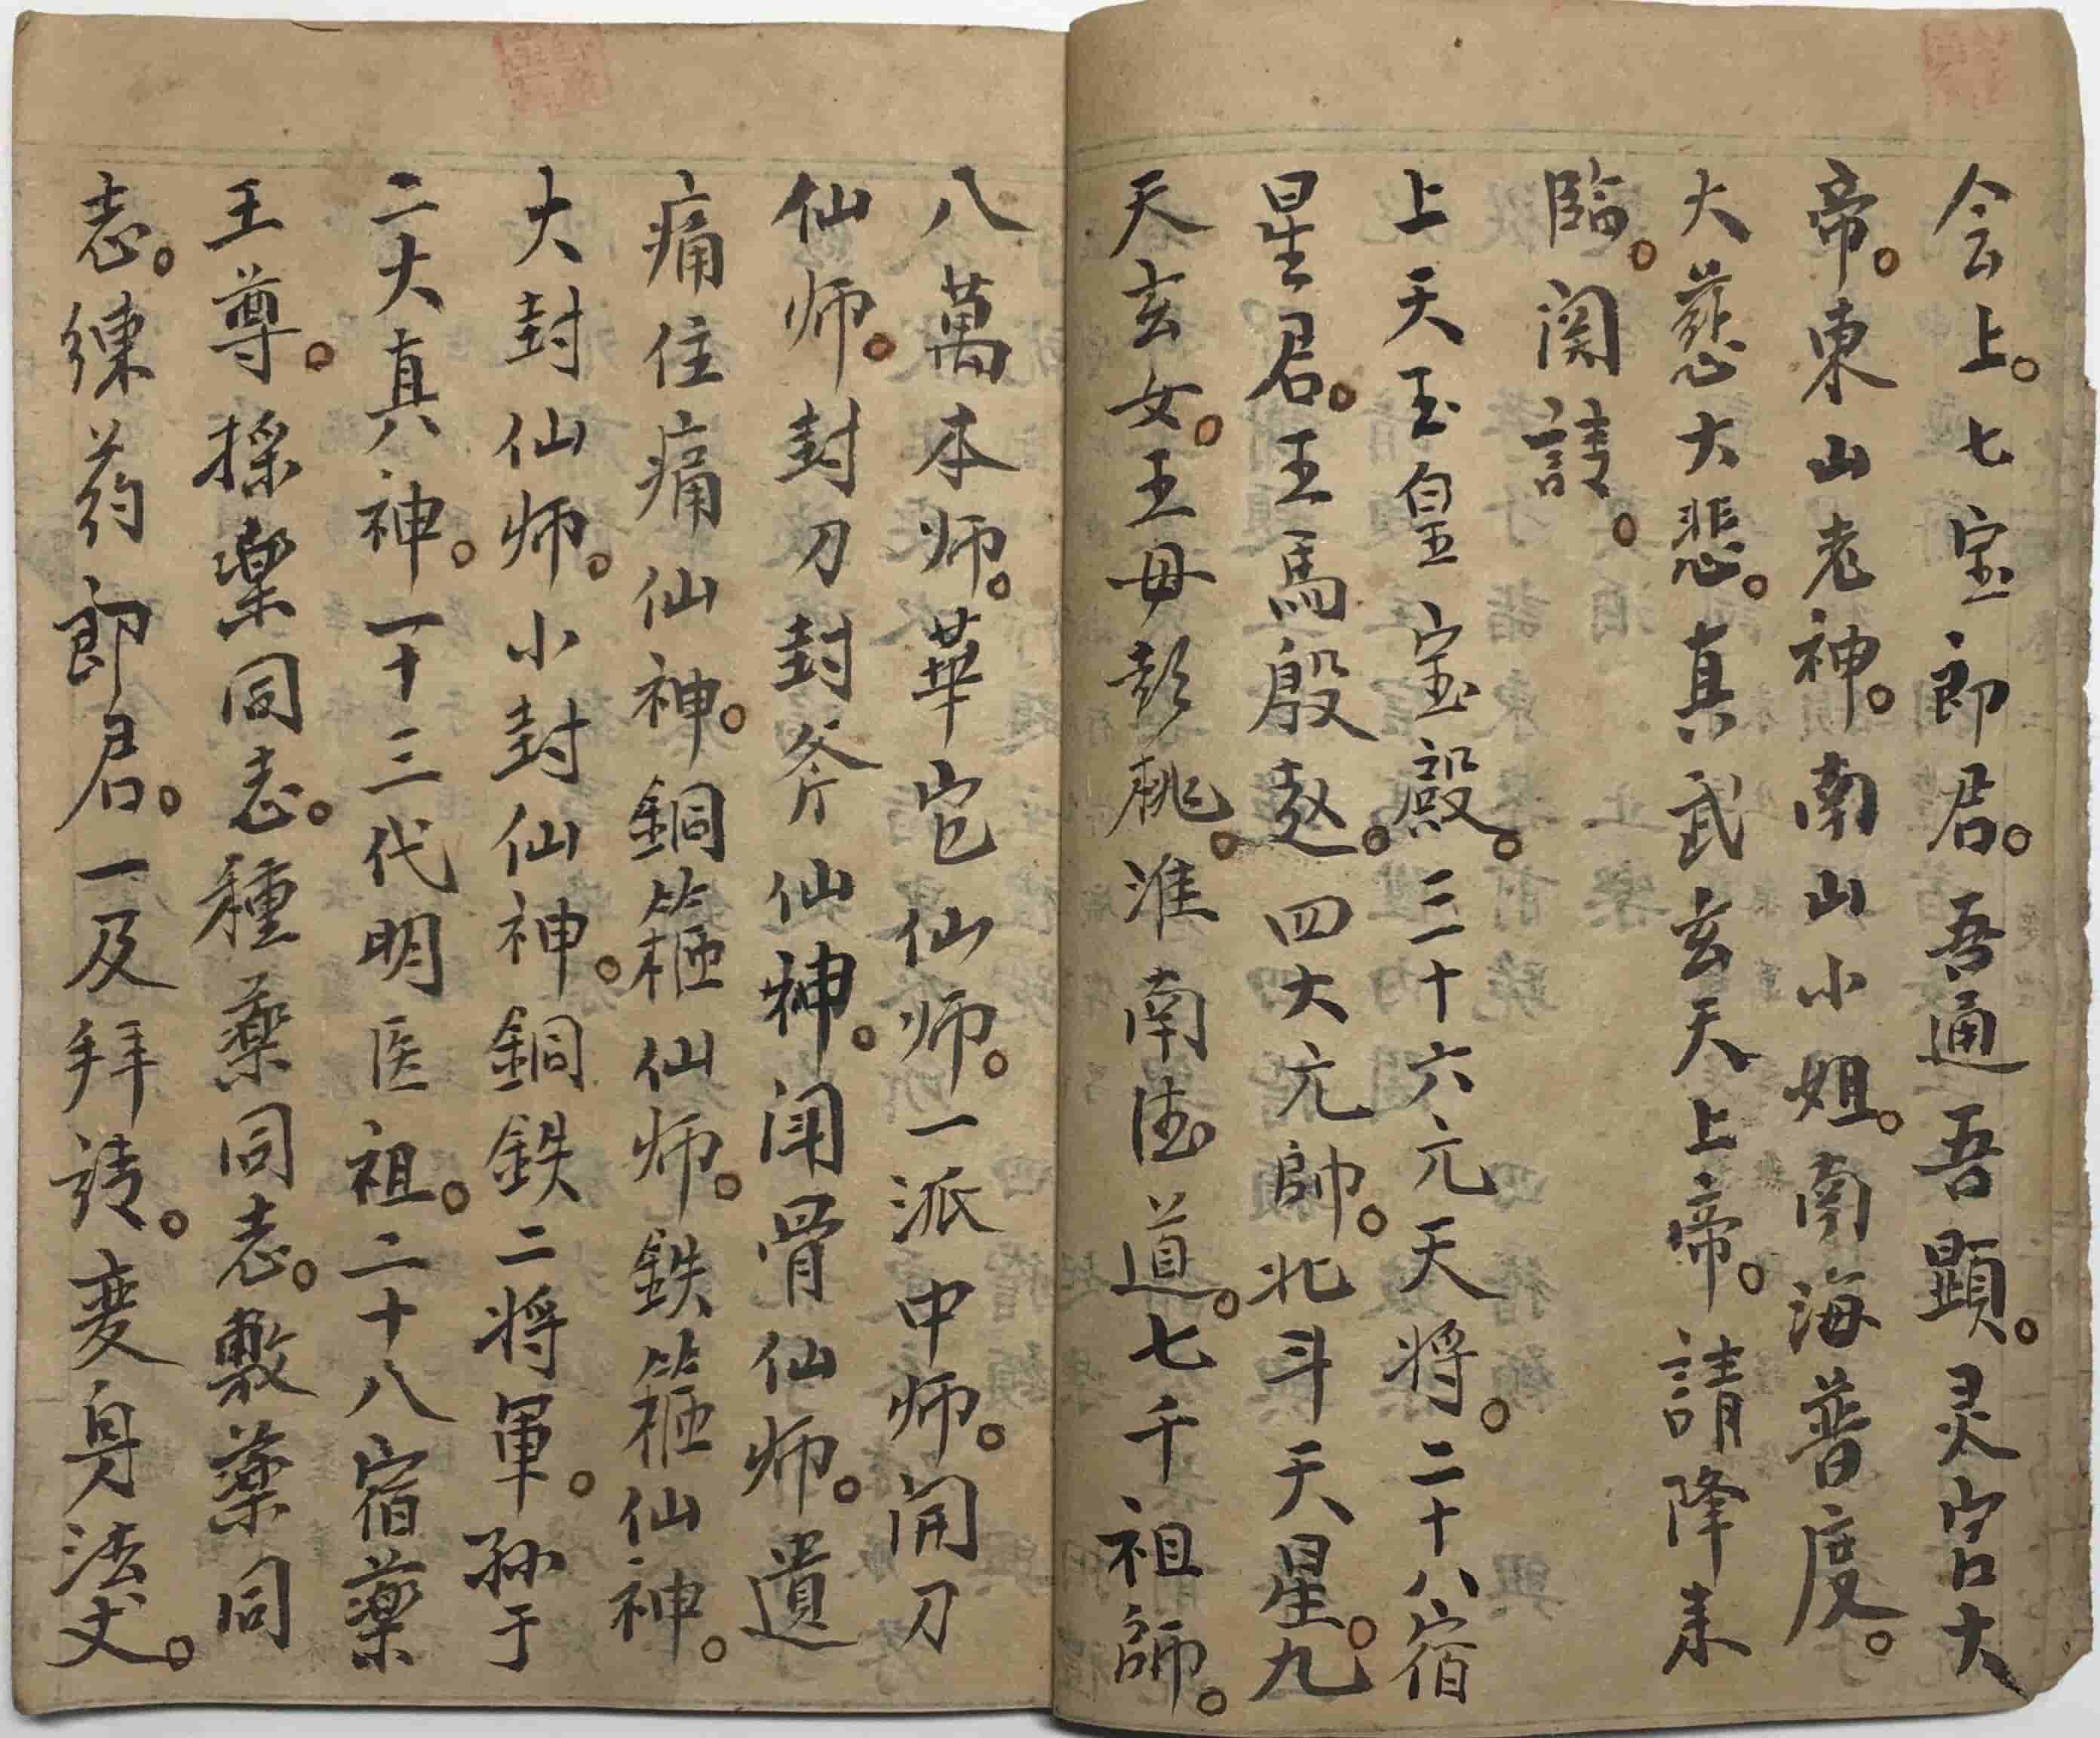 会上。七宝郎君。吾通吾顕。灵官大
帝。東山老神。南山小姐。南海普度。
大慈大悲。真武玄天上帝。請降来
臨。関請。
上天玉皇宝殿。三十六元天将。二十八宿
星君。王馬殷赵。四大元帥。北斗天星。九
天玄女。王母彭桃。淮南法道。七千祖師。
八萬本师。華它仙师。一派中师。開刀
仙师。封刀封斧仙神。闻骨仙师。遺
痛住痛仙神。銅箍仙师。鉄箍仙神。
大封仙师。小封仙神。銅鉄二将軍。孙于
二大真神。一十三代明医祖。二十八宿薬
王尊。採藥同志。種薬同志。敷薬同
志。練药郎君。一及拜請。变身法丈。